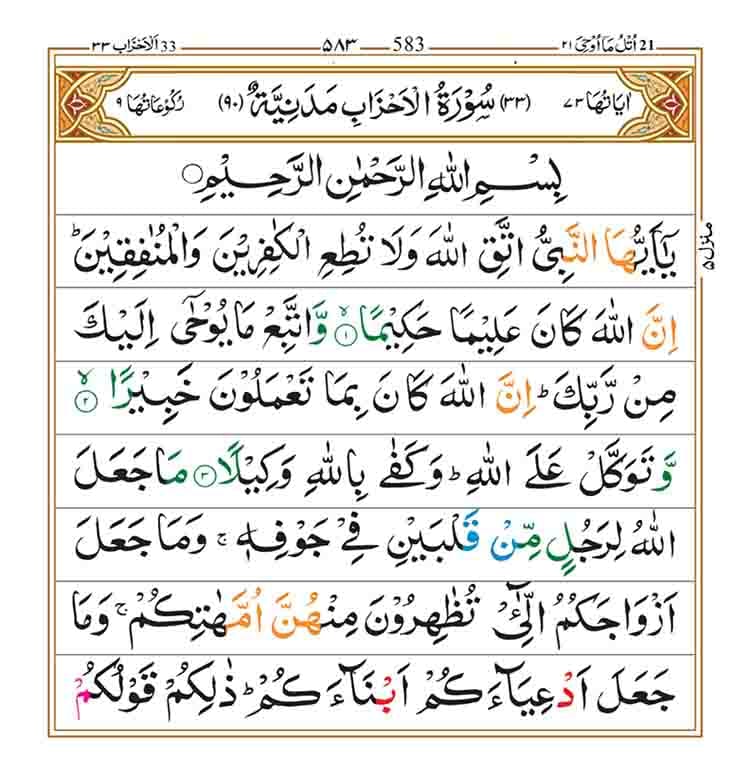 اُتْلُ مَآ اُوْحِیَ ٢١ 21 583 ٥٨٣ اَلْاَحْزَاب ٣٣ 33
اٰیَاتُهَا ٧٣ (٣٣) سُوْرَةُ الْاَحْزَابِ مَدَنِیَّةٌ (٩٠) رُكُوْعَاتُهَا ٩
بِسْمِ اللهِ الرَّحْمٰنِ الرَّحِیْمِ
یٰۤاَیُّهَا النَّبِیُّ اتَّقِ اللهَ وَلَا تُطِعِ الْكٰفِرِیْنَ وَالْمُنٰفِقِیْنَ ؕ
اِنَّ اللهَ كَانَ عَلِیْمًا حَكِیْمًا ۙ﴿١﴾ وَّاتَّبِعْ مَا یُوْحٰۤی اِلَیْكَ
مِنْ رَّبِّكَ ؕ اِنَّ اللهَ كَانَ بِمَا تَعْمَلُوْنَ خَبِیْرًا ۙ﴿٢﴾
وَّتَوَكَّلْ عَلَی اللهِ ؕ وَكَفٰی بِاللهِ وَكِیْلًا ﴿٣﴾ مَا جَعَلَ
اللهُ لِرَجُلٍ مِّنْ قَلْبَیْنِ فِیْ جَوْفِهٖ ۚ وَمَا جَعَلَ
اَزْوَاجَكُمُ الّٰٓـِٔیْ تُظٰهِرُوْنَ مِنْهُنَّ اُمَّهٰتِكُمْ ۚ وَمَا
جَعَلَ اَدْعِیَآءَكُمْ اَبْنَآءَكُمْ ؕ ذٰلِكُمْ قَوْلُكُمْ
منزل ٥